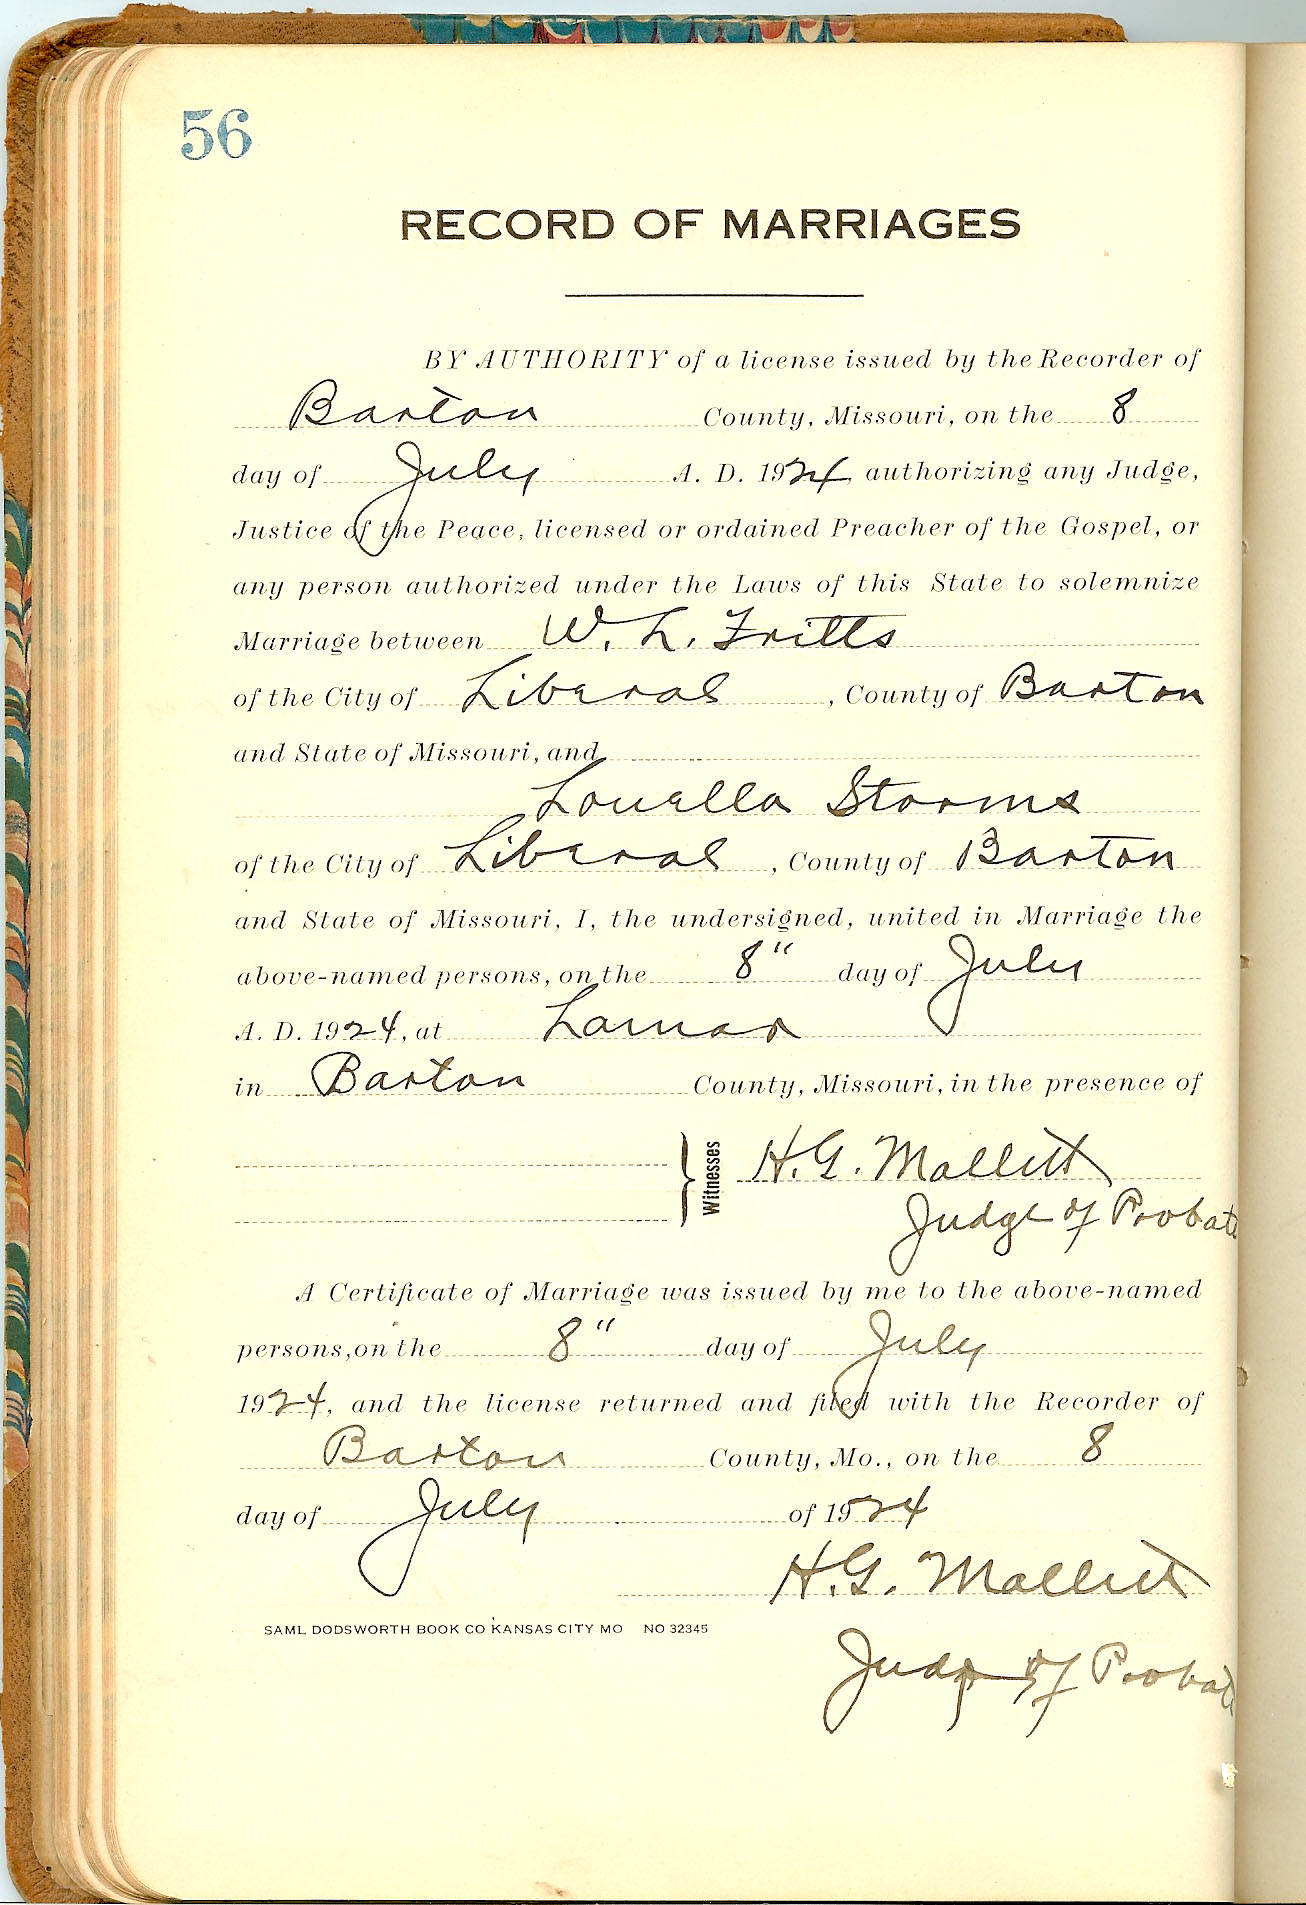 56
RECORD OF MARRIAGES
BY AUTHORITY of a license issued by the Recorder of
Barton County, Missouri, on the 8
day of July A. D. 1924, authorizing any Judge,
Justice of the Peace, licensed or ordained Preacher of the Gospel, or
any person authorized under the Laws of this State to solemnize
Marriage between W. L. Fritts
of the City of Liberal, County of Barton
and State of Missouri, and
Louella Storms
of the City of Liberal, County of Barton
and State of Missouri, I, the undersigned, united in Marriage the
above-named persons, on the 8" day of July
A. D. 1924, at Lamar
in Barton County, Missouri, in the presence of
Witnesses H. G. Mallett
Judge of Probate
A Certificate of Marriage was issued by me to the above-named
persons, on the 8" day of July
1924, and the license returned and filed with the Recorder of
Barton County, Mo., on the 8
day of July of 1924
H. G. Mallett
SAML DODSWORTH BOOK CO KANSAS CITY MO NO 32345
Judge of Probate